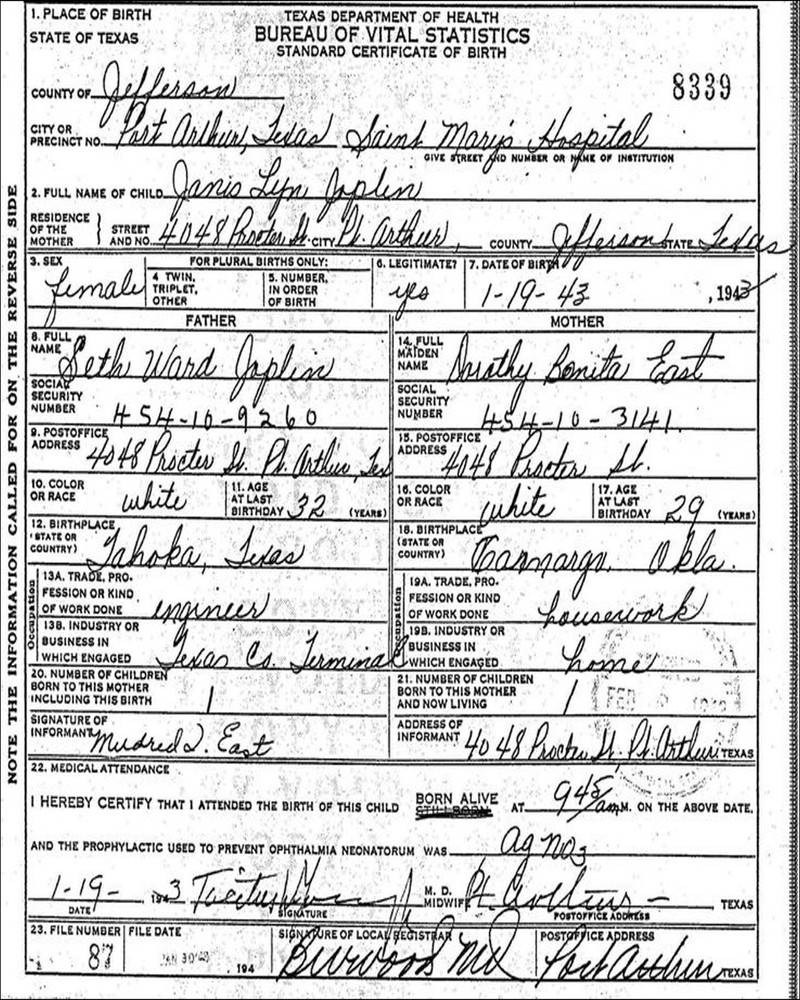 1. PLACE OF BIRTH
STATE OF TEXAS
TEXAS DEPARTMENT OF HEALTH
BUREAU OF VITAL STATISTICS
STANDARD CERTIFICATE OF BIRTH
8339
COUNTY OF Jefferson
CITY OR PRECINCT NO. Port Arthur, Texas Saint Mary's Hospital
GIVE STREET AND NUMBER OR NAME OF INSTITUTION
2. FULL NAME OF CHILD Janis Lyn Joplin
RESIDENCE OF THE MOTHER } STREET AND NO. 4048 Procter St. CITY Pt. Arthur, COUNTY Jefferson STATE Texas
3. SEX female
FOR PLURAL BIRTHS ONLY:
4 TWIN, TRIPLET, OTHER
5. NUMBER, IN ORDER OF BIRTH
6. LEGITIMATE? yes
7. DATE OF BIRTH 1-19-43 , 1943
FATHER
8. FULL NAME Seth Ward Joplin
SOCIAL SECURITY NUMBER 454-10-9260
9. POSTOFFICE ADDRESS 4048 Procter St. Pt. Arthur, Tex
10. COLOR OR RACE white
11. AGE AT LAST BIRTHDAY 32 (YEARS)
12. BIRTHPLACE (STATE OR COUNTRY) Tahoka, Texas
Occupation
13A. TRADE, PROFESSION OR KIND OF WORK DONE engineer
13B. INDUSTRY OR BUSINESS IN WHICH ENGAGED Texas Co. Terminal
20. NUMBER OF CHILDREN BORN TO THIS MOTHER INCLUDING THIS BIRTH 1
SIGNATURE OF INFORMANT Mildred I. East
MOTHER
14. FULL MAIDEN NAME Dorothy Bonita East
SOCIAL SECURITY NUMBER 454-10-3141
15. POSTOFFICE ADDRESS 4048 Procter St.
16. COLOR OR RACE white
17. AGE AT LAST BIRTHDAY 29 (YEARS)
18. BIRTHPLACE (STATE OR COUNTRY) Camargo, Okla.
Occupation
19A. TRADE, PROFESSION OR KIND OF WORK DONE housework
19B. INDUSTRY OR BUSINESS IN WHICH ENGAGED home
21. NUMBER OF CHILDREN BORN TO THIS MOTHER AND NOW LIVING 1
FEB
ADDRESS OF INFORMANT 4048 Procter St. Pt. Arthur TEXAS
22. MEDICAL ATTENDANCE
I HEREBY CERTIFY THAT I ATTENDED THE BIRTH OF THIS CHILD BORN ALIVE STILLBORN AT 945 am M. ON THE ABOVE DATE,
AND THE PROPHYLACTIC USED TO PREVENT OPHTHALMIA NEONATORUM WAS Ag NO3
1-19- 1943
DATE
SIGNATURE
M. D. MIDWIFE Pt Arthur - TEXAS
POSTOFFICE ADDRESS
23. FILE NUMBER 87
FILE DATE JAN 30 194
SIGNATURE OF LOCAL REGISTRAR
POSTOFFICE ADDRESS Port Arthur TEXAS
NOTE THE INFORMATION CALLED FOR ON THE REVERSE SIDE